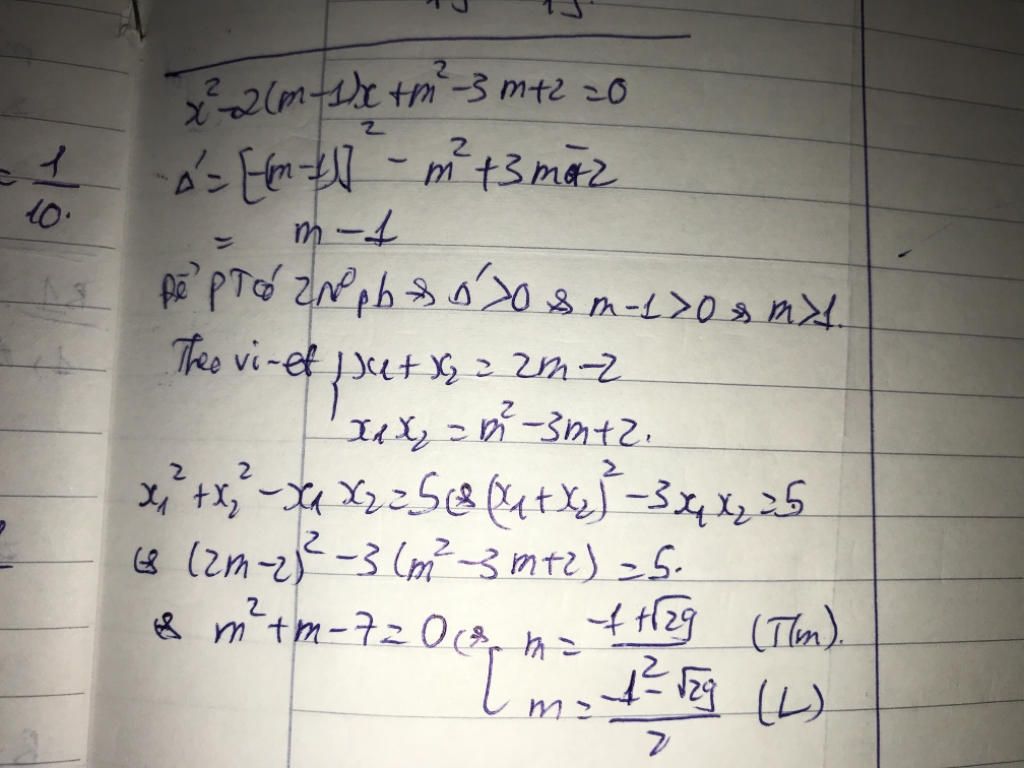 x² - 2(m-1)x + m² - 3m + 2 = 0
= 1/10.
Δ' = [-(m-1)]² - m² + 3m - 2
= m - 1
Để PT có 2 N⁰ pb ⇔ Δ' > 0 ⇔ m - 1 > 0 ⇔ m > 1.
Theo vi-et { x₁ + x₂ = 2m - 2
x₁x₂ = m² - 3m + 2.
x₁² + x₂² - x₁x₂ = 5 ⇔ (x₁ + x₂)² - 3x₁x₂ = 5
⇔ (2m-2)² - 3(m² - 3m + 2) = 5.
⇔ m² + m - 7 = 0 ⇔ [ m = (-1 + √29)/2 (TM).
m = (-1 - √29)/2 (L)